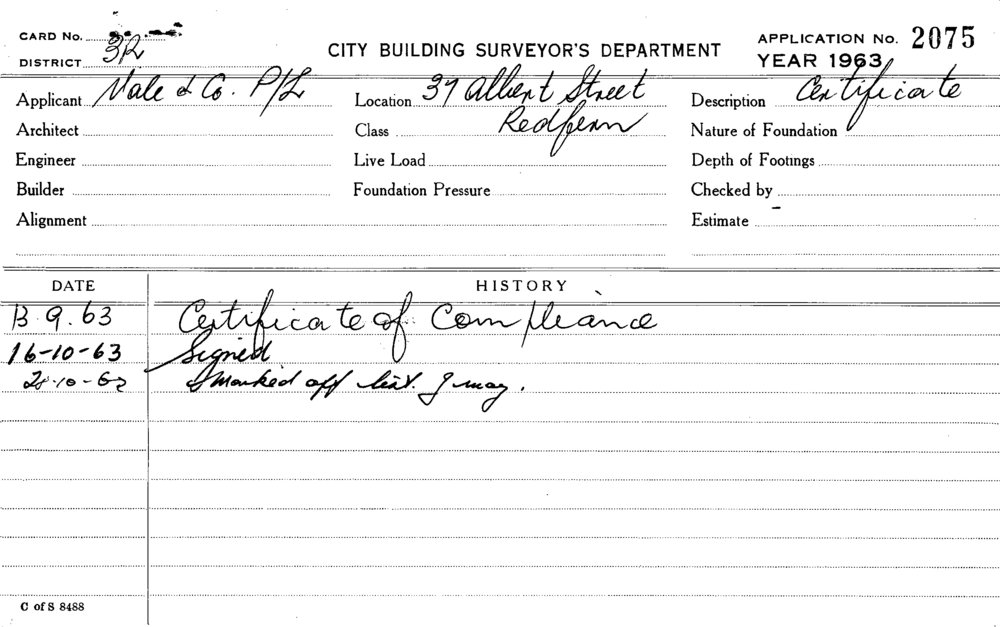 CARD No.
DISTRICT 3R
CITY BUILDING SURVEYOR'S DEPARTMENT
APPLICATION No. 2075
YEAR 1963
Applicant Vale & Co. P/L
Location 37 Albert Street
Redfern
Description Certificate
Architect
Class
Nature of Foundation
Engineer
Live Load
Depth of Footings
Builder
Foundation Pressure
Checked by
Alignment
Estimate
DATE
HISTORY
13.9.63 Certificate of Compliance
16-10-63 Signed
marked off list.
C of S 8488